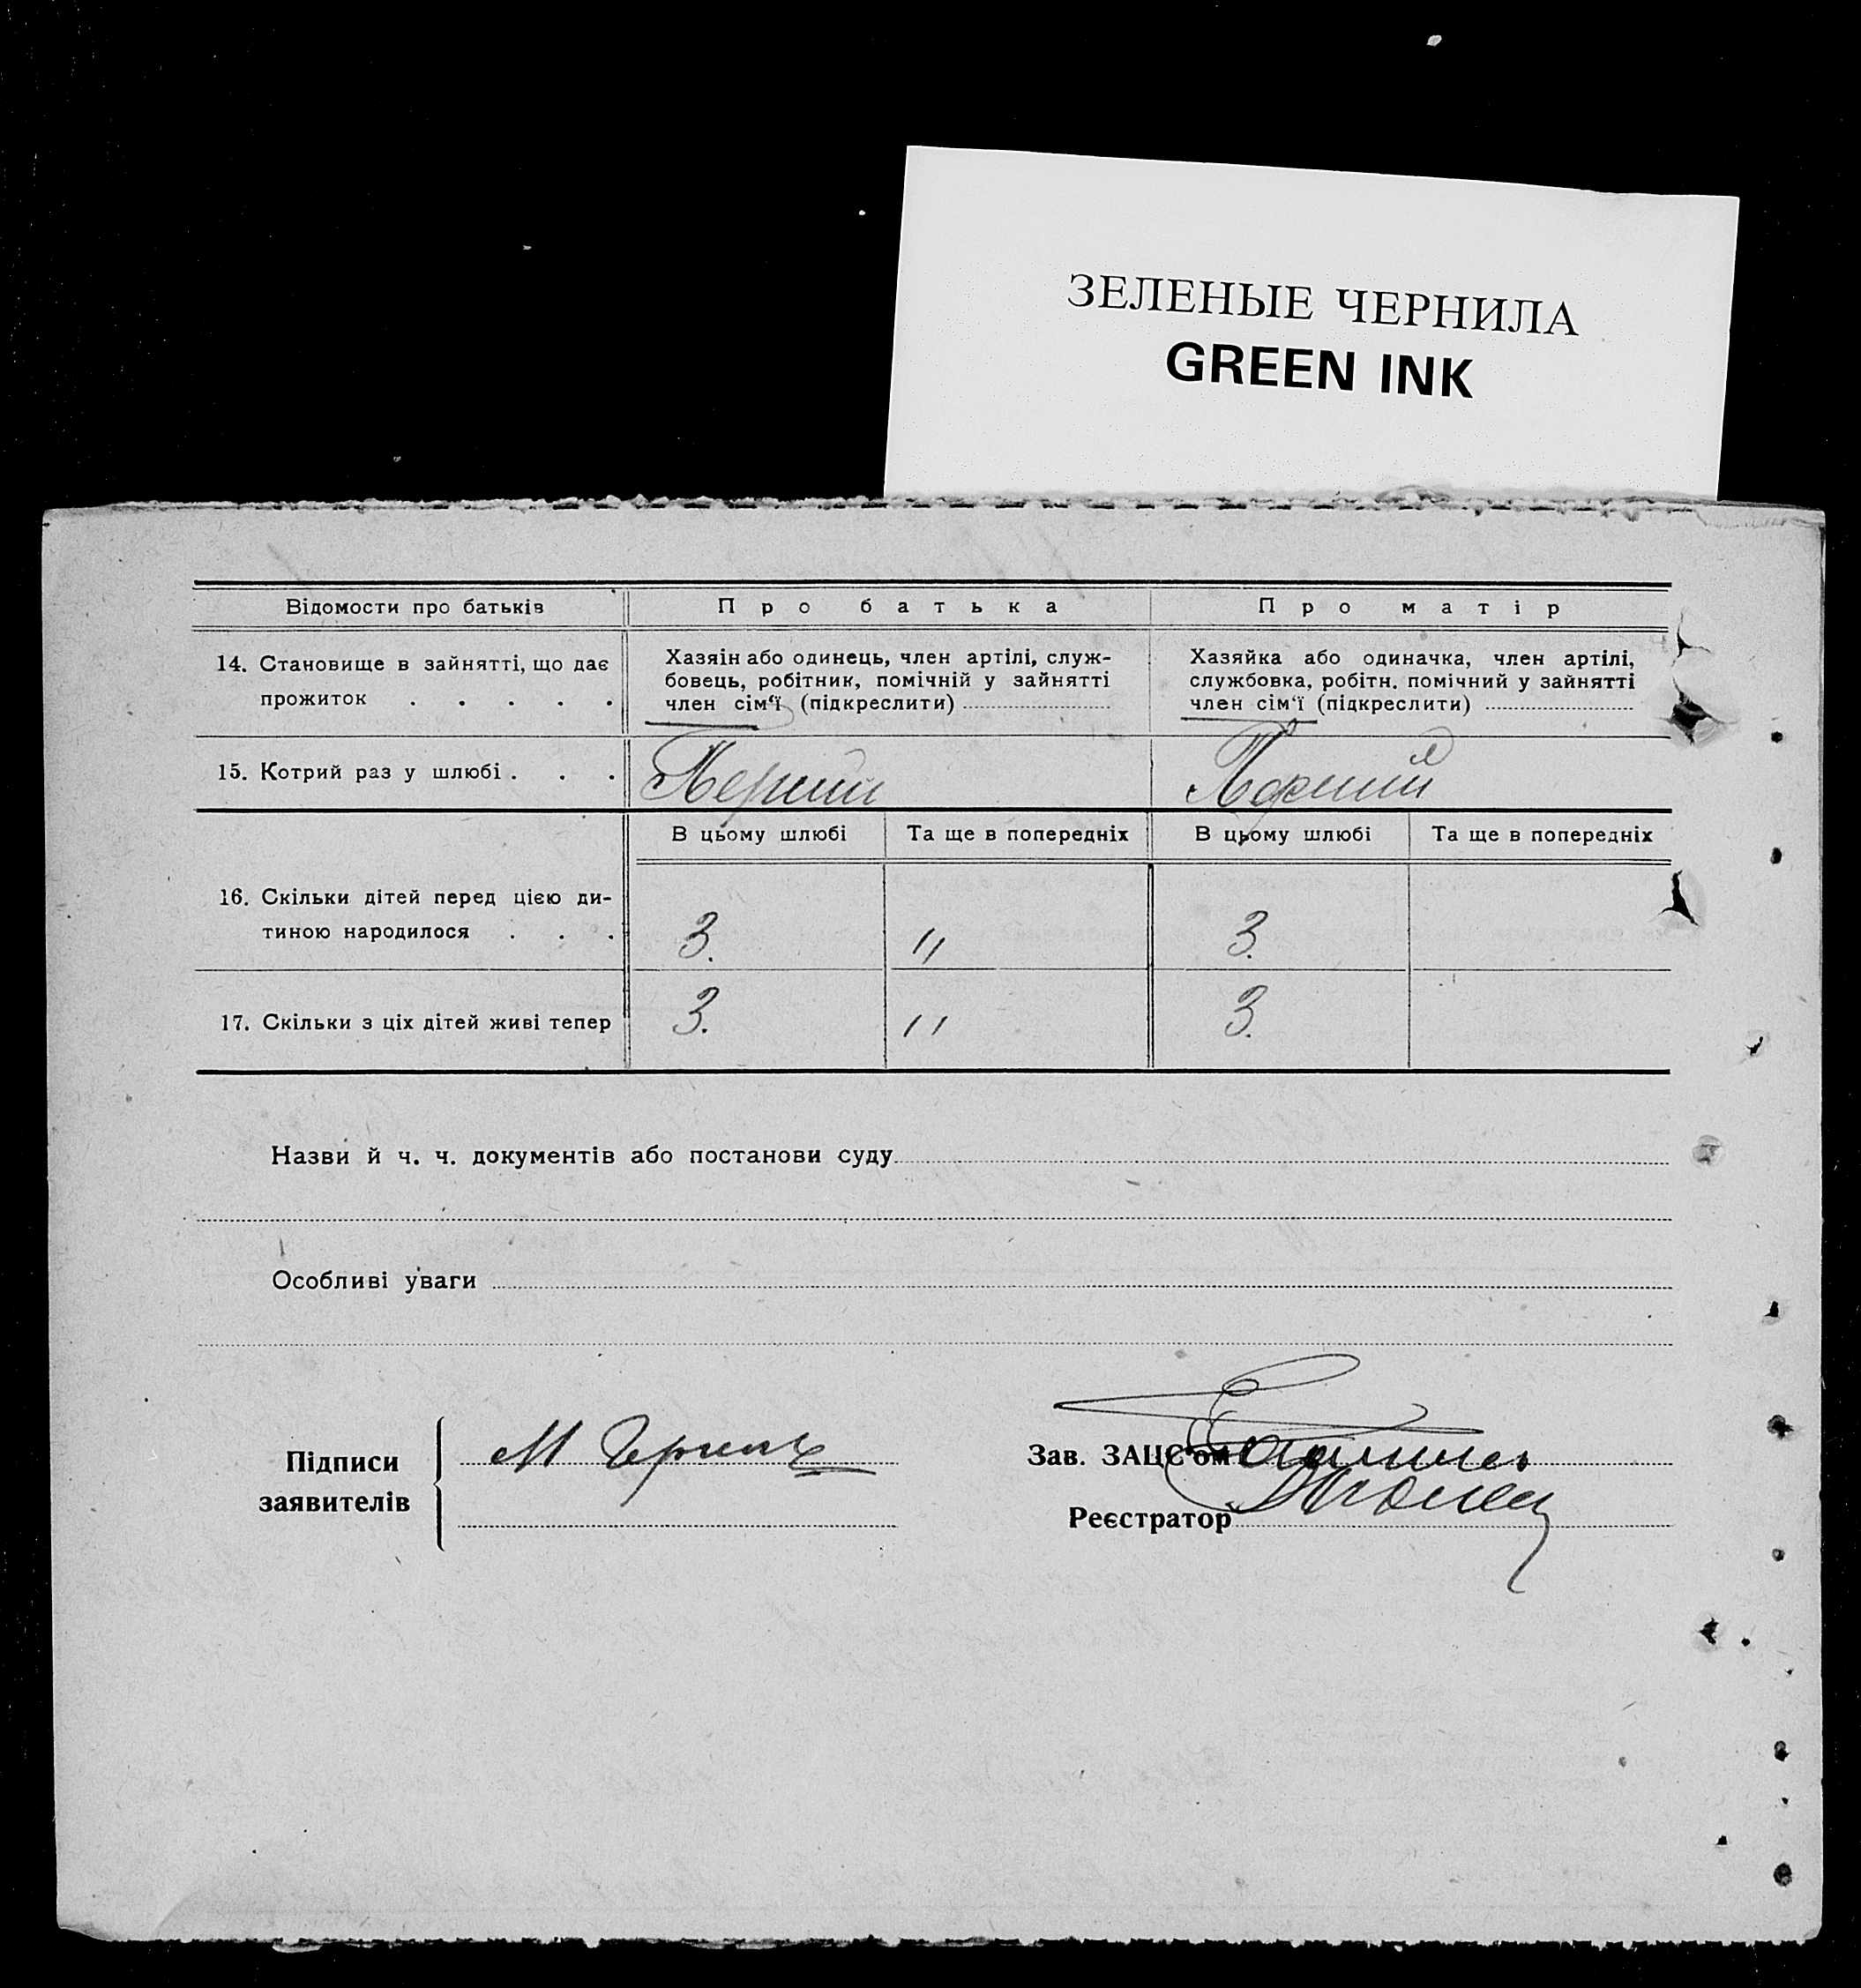 ЗЕЛЕНЫЕ ЧЕРНИЛА
GREEN INK
Відомости про батьків
Про батька
Про матір
14. Становище в зайнятті, що дає
прожиток . . . . .
Хазяін або одинець, член артілі, служ-
бовець, робітник, помічній у зайнятті
член сім‘ї (підкреслити)
Хазяйка або одиначка, член артілі,
службовка, робітн. помічний у зайнятті
член сім‘ї (підкреслити)
15. Котрий раз у шлюбі . . .
В цьому шлюбі
Та ще в попередніх
В цьому шлюбі
Та ще в попередніх
16. Скільки дітей перед цією ди-
тиною народилося . . .
3. " 3.
17. Скільки з ціх дітей живі тепер
3. " 3.
Назви й ч. ч. документів або постанови суду
Особливі уваги
Підписи
заявителів
М
Зав. ЗАЦС'ом
Реєстратор